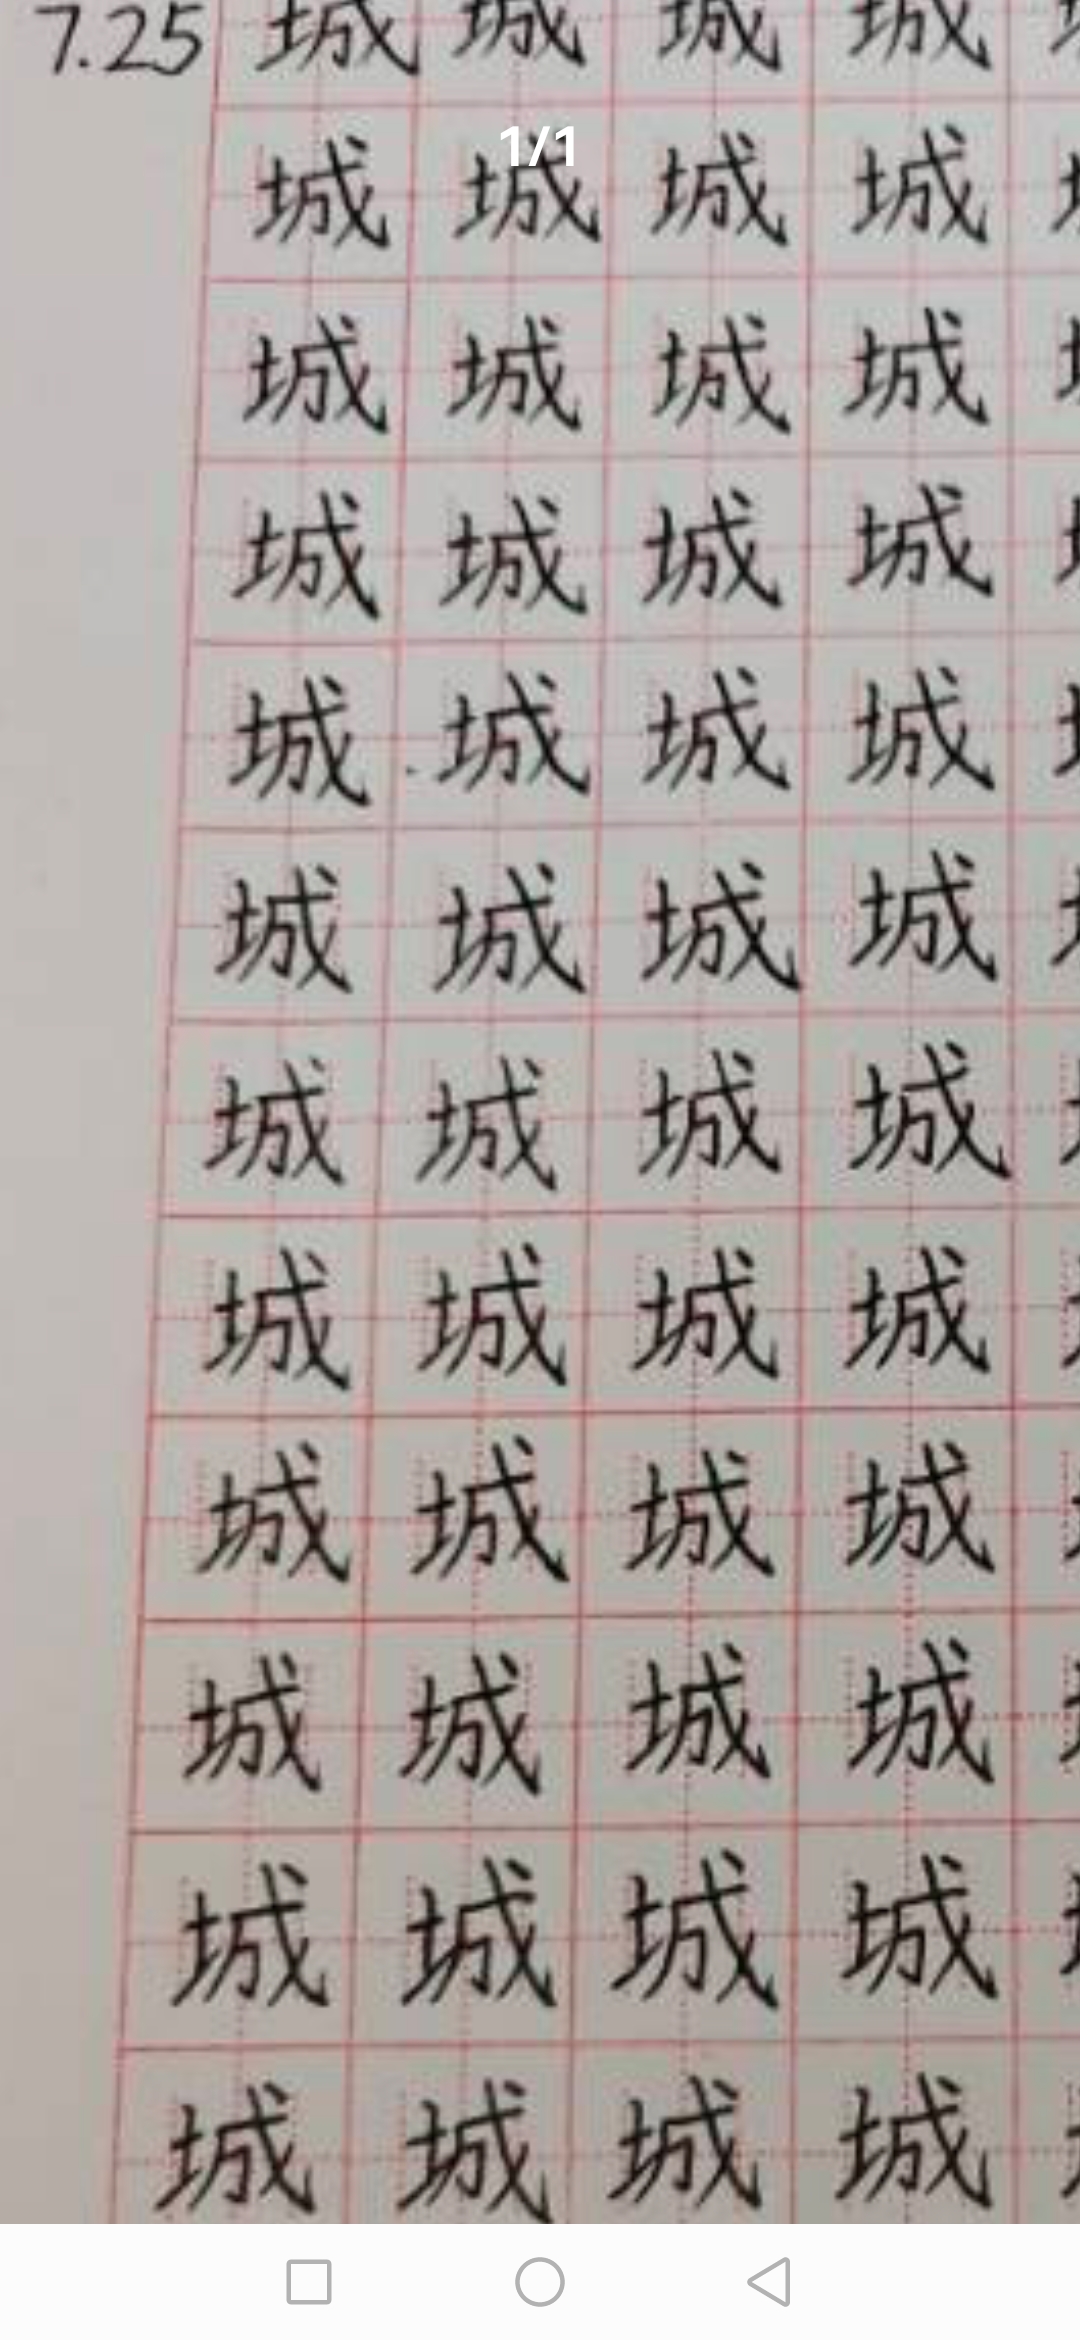 7.25 城 城 城 城
1/1
城 城 城 城
城 城 城 城
城 城 城 城
城 城 城 城
城 城 城 城
城 城 城 城
城 城 城 城
城 城 城 城
城 城 城 城
城 城 城 城
城 城 城 城